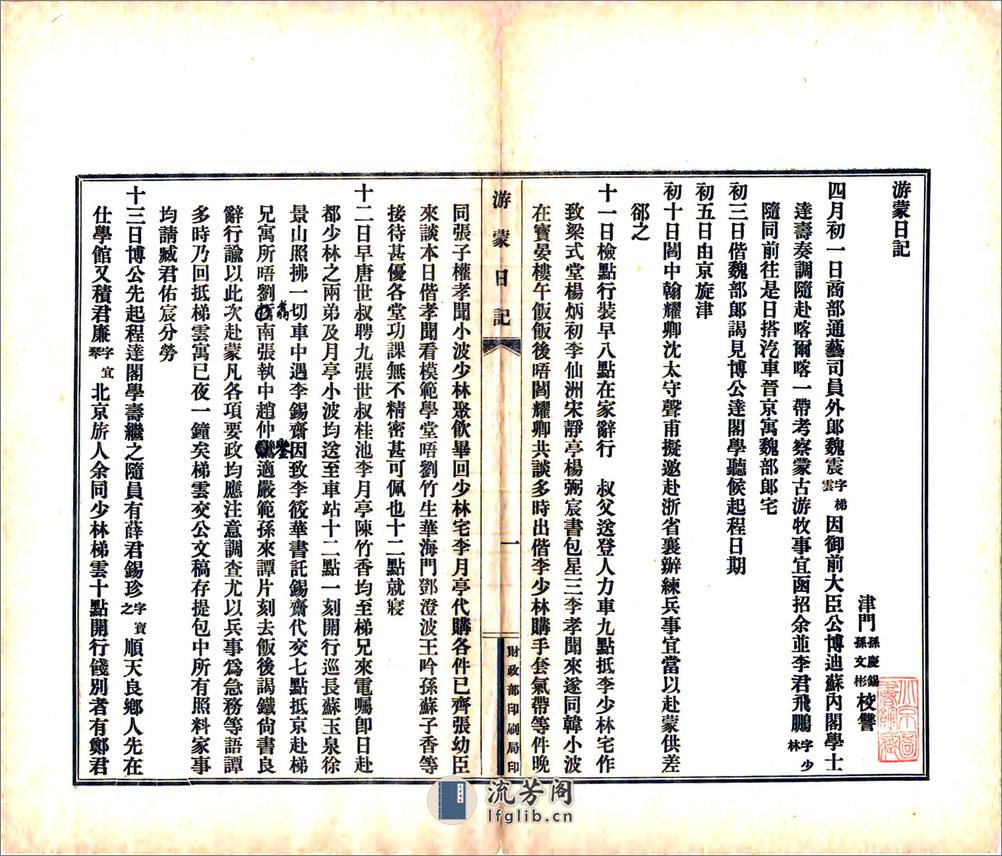 游蒙日記
津門孫慶錫孫文彬校讐
四月初一日商部通藝司員外郎魏震字梯雲因御前大臣公博迪蘇內閣學士
達壽奏調隨赴喀爾喀一帶考察蒙古游牧事宜函招余並李君飛鵬字少林
隨同前往是日搭汽車晉京寓魏部郎宅
初三日偕魏部郎謁見博公達閣學聽候起程日期
初五日由京旋津
初十日閻中翰耀卿沈太守聲甫擬邀赴浙省襄辦練兵事宜當以赴蒙供差
郤之
十一日檢點行裝早八點在家辭行 叔父送登人力車九點抵李少林宅作
致梁式堂楊炳初李仙洲宋靜亭楊弼宸書包星三李孝聞來遂同韓小波
在寶晏樓午飯飯後唔閻耀卿共談多時出偕李少林購手套氣帶等件晚
游蒙日記
一
財政部印刷局印
同張子權孝聞小波少林聚飲畢回少林宅李月亭代購各件已齊張幼臣
來談本日偕孝聞看模範學堂唔劉竹生華海門鄧澄波王吟孫蘇子香等
接待甚優各堂功課無不精密甚可佩也十二點就寢
十二日早唐世叔聘九張世叔桂池李月亭陳竹香均至梯兄來電囑卽日赴
都少林之兩弟及月亭小波均送至車站十二點一刻開行巡長蘇玉泉徐
景山照拂一切車中遇李錫齋因致李筱華書託錫齋代交七點抵京赴梯
兄寓所唔劉南張執中趙仲適嚴範孫來譚片刻去飯後謁鐵尙書良
辭行諭以此次赴蒙凡各項要政均應注意調查尤以兵事爲急務等語譚
多時乃回抵梯雲寓已夜一鐘矣梯雲交公文稿存提包中所有照料家事
均請臧君佑宸分勞
十三日博公先起程達閣學壽繼之隨員有薛君錫珍字寶之順天良鄉人先在
仕學館又積君廉字宜琴北京旂人余同少林梯雲十點開行餞別者有鄭君
流芳阁
lfglib.cn